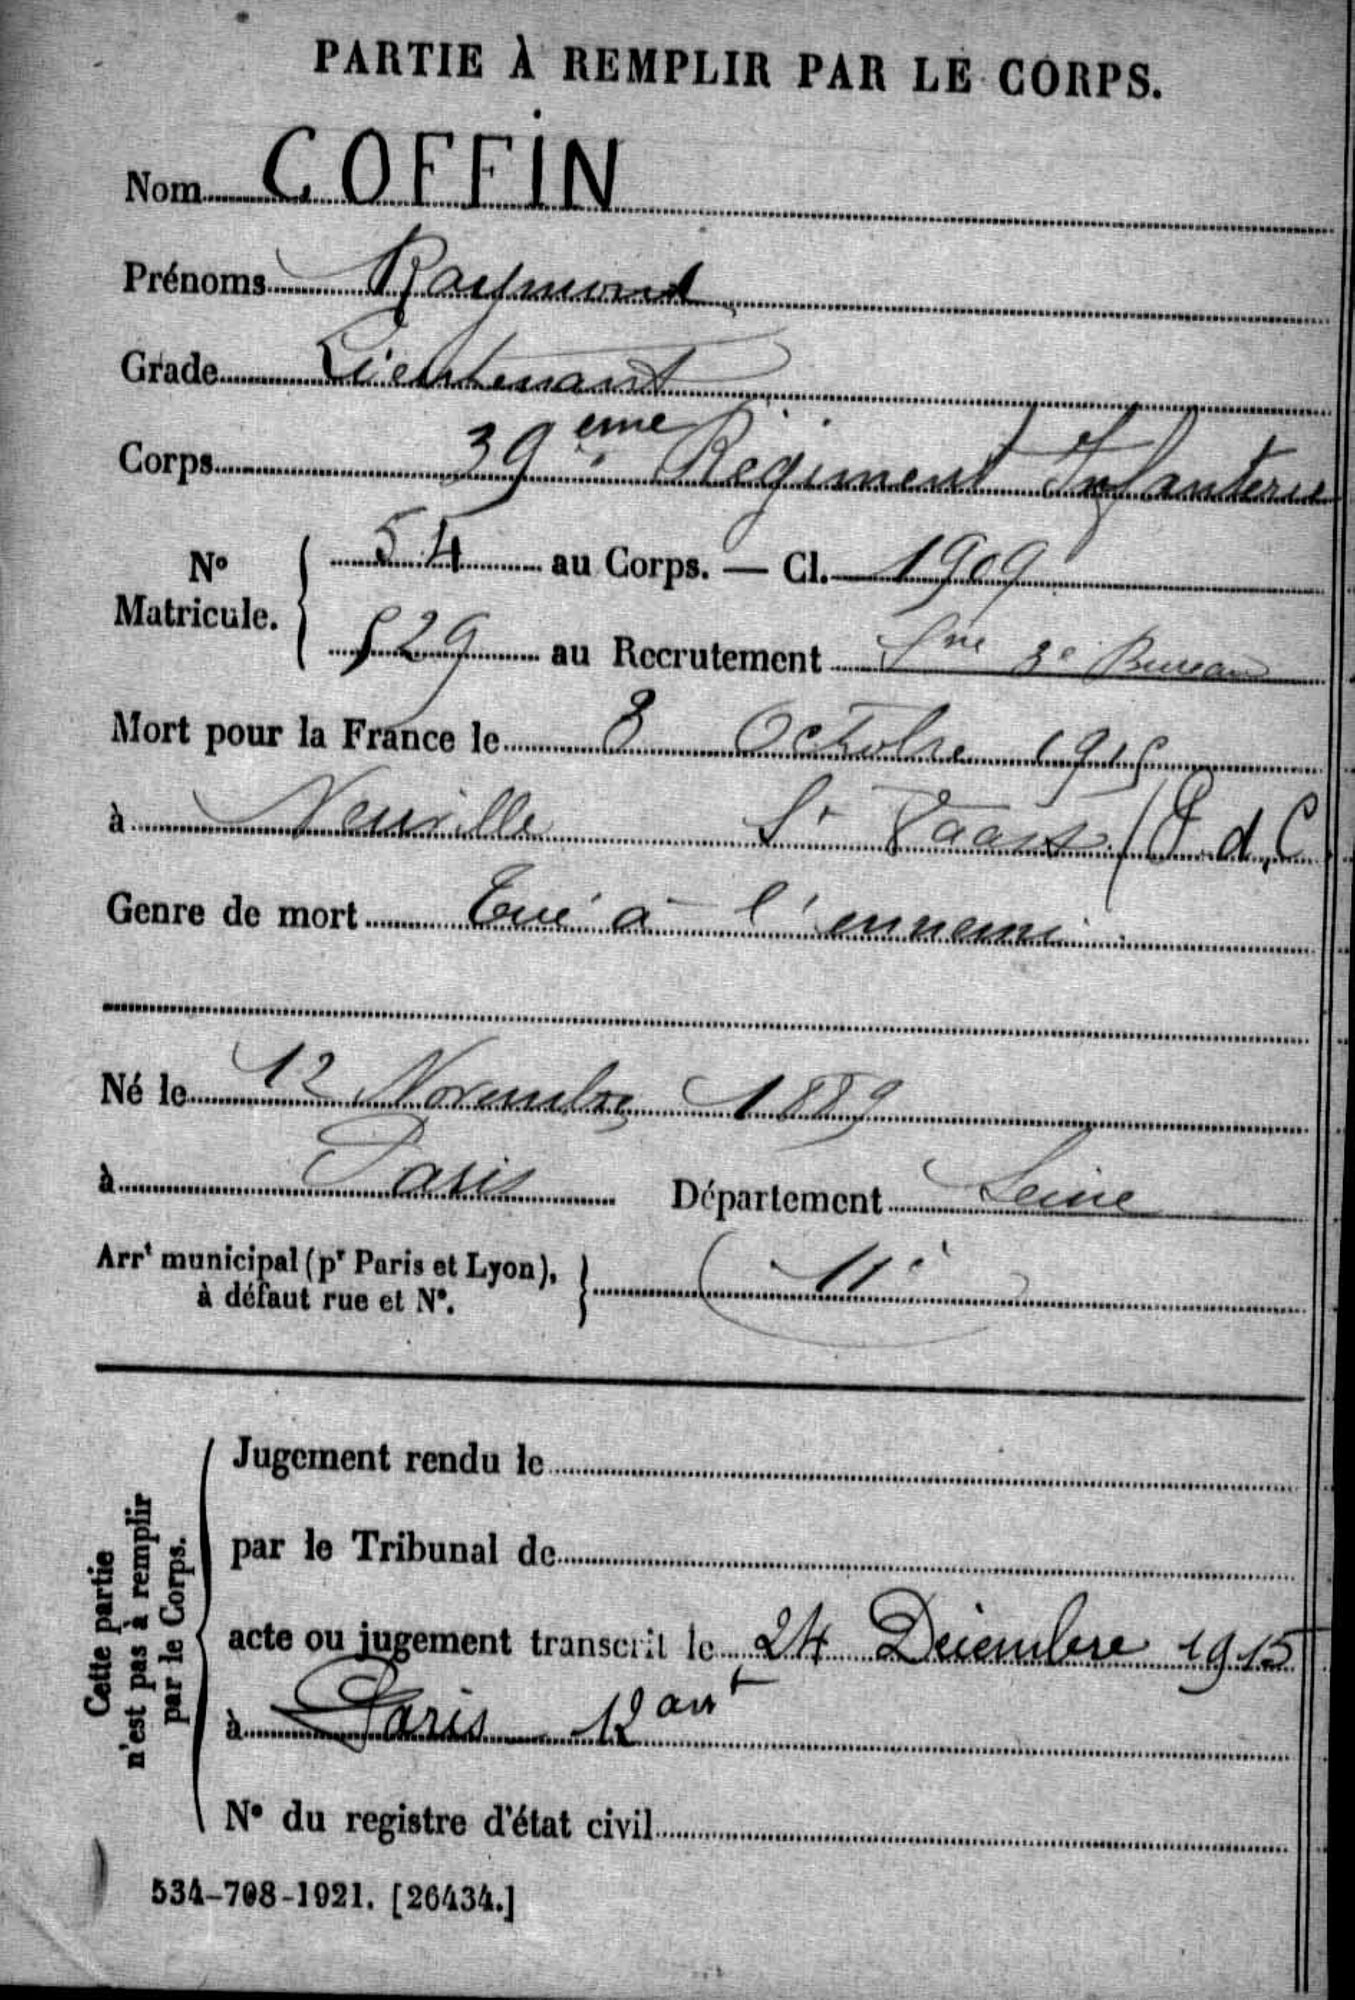 PARTIE À REMPLIR PAR LE CORPS.
Nom COFFIN
Prénoms Raymond
Grade Lieutenant
Corps 39eme Régiment Infanterie
N° Matricule. 54 au Corps. — Cl. 1909
529 au Recrutement Sne 3e Bureau
Mort pour la France le 8 Octobre 1915
à Neuville St Vaast (P. d. C
Genre de mort Tué à l'ennemi
Né le 12 Novembre 1889
à Paris Département Seine
Arrt municipal (pr Paris et Lyon), à défaut rue et N°. 11e
Cette partie n'est pas à remplir par le Corps.
Jugement rendu le
par le Tribunal de
acte ou jugement transcrit le 24 Décembre 1915
à Paris 12 arrt
N° du registre d'état civil
534-708-1921. [26434.]